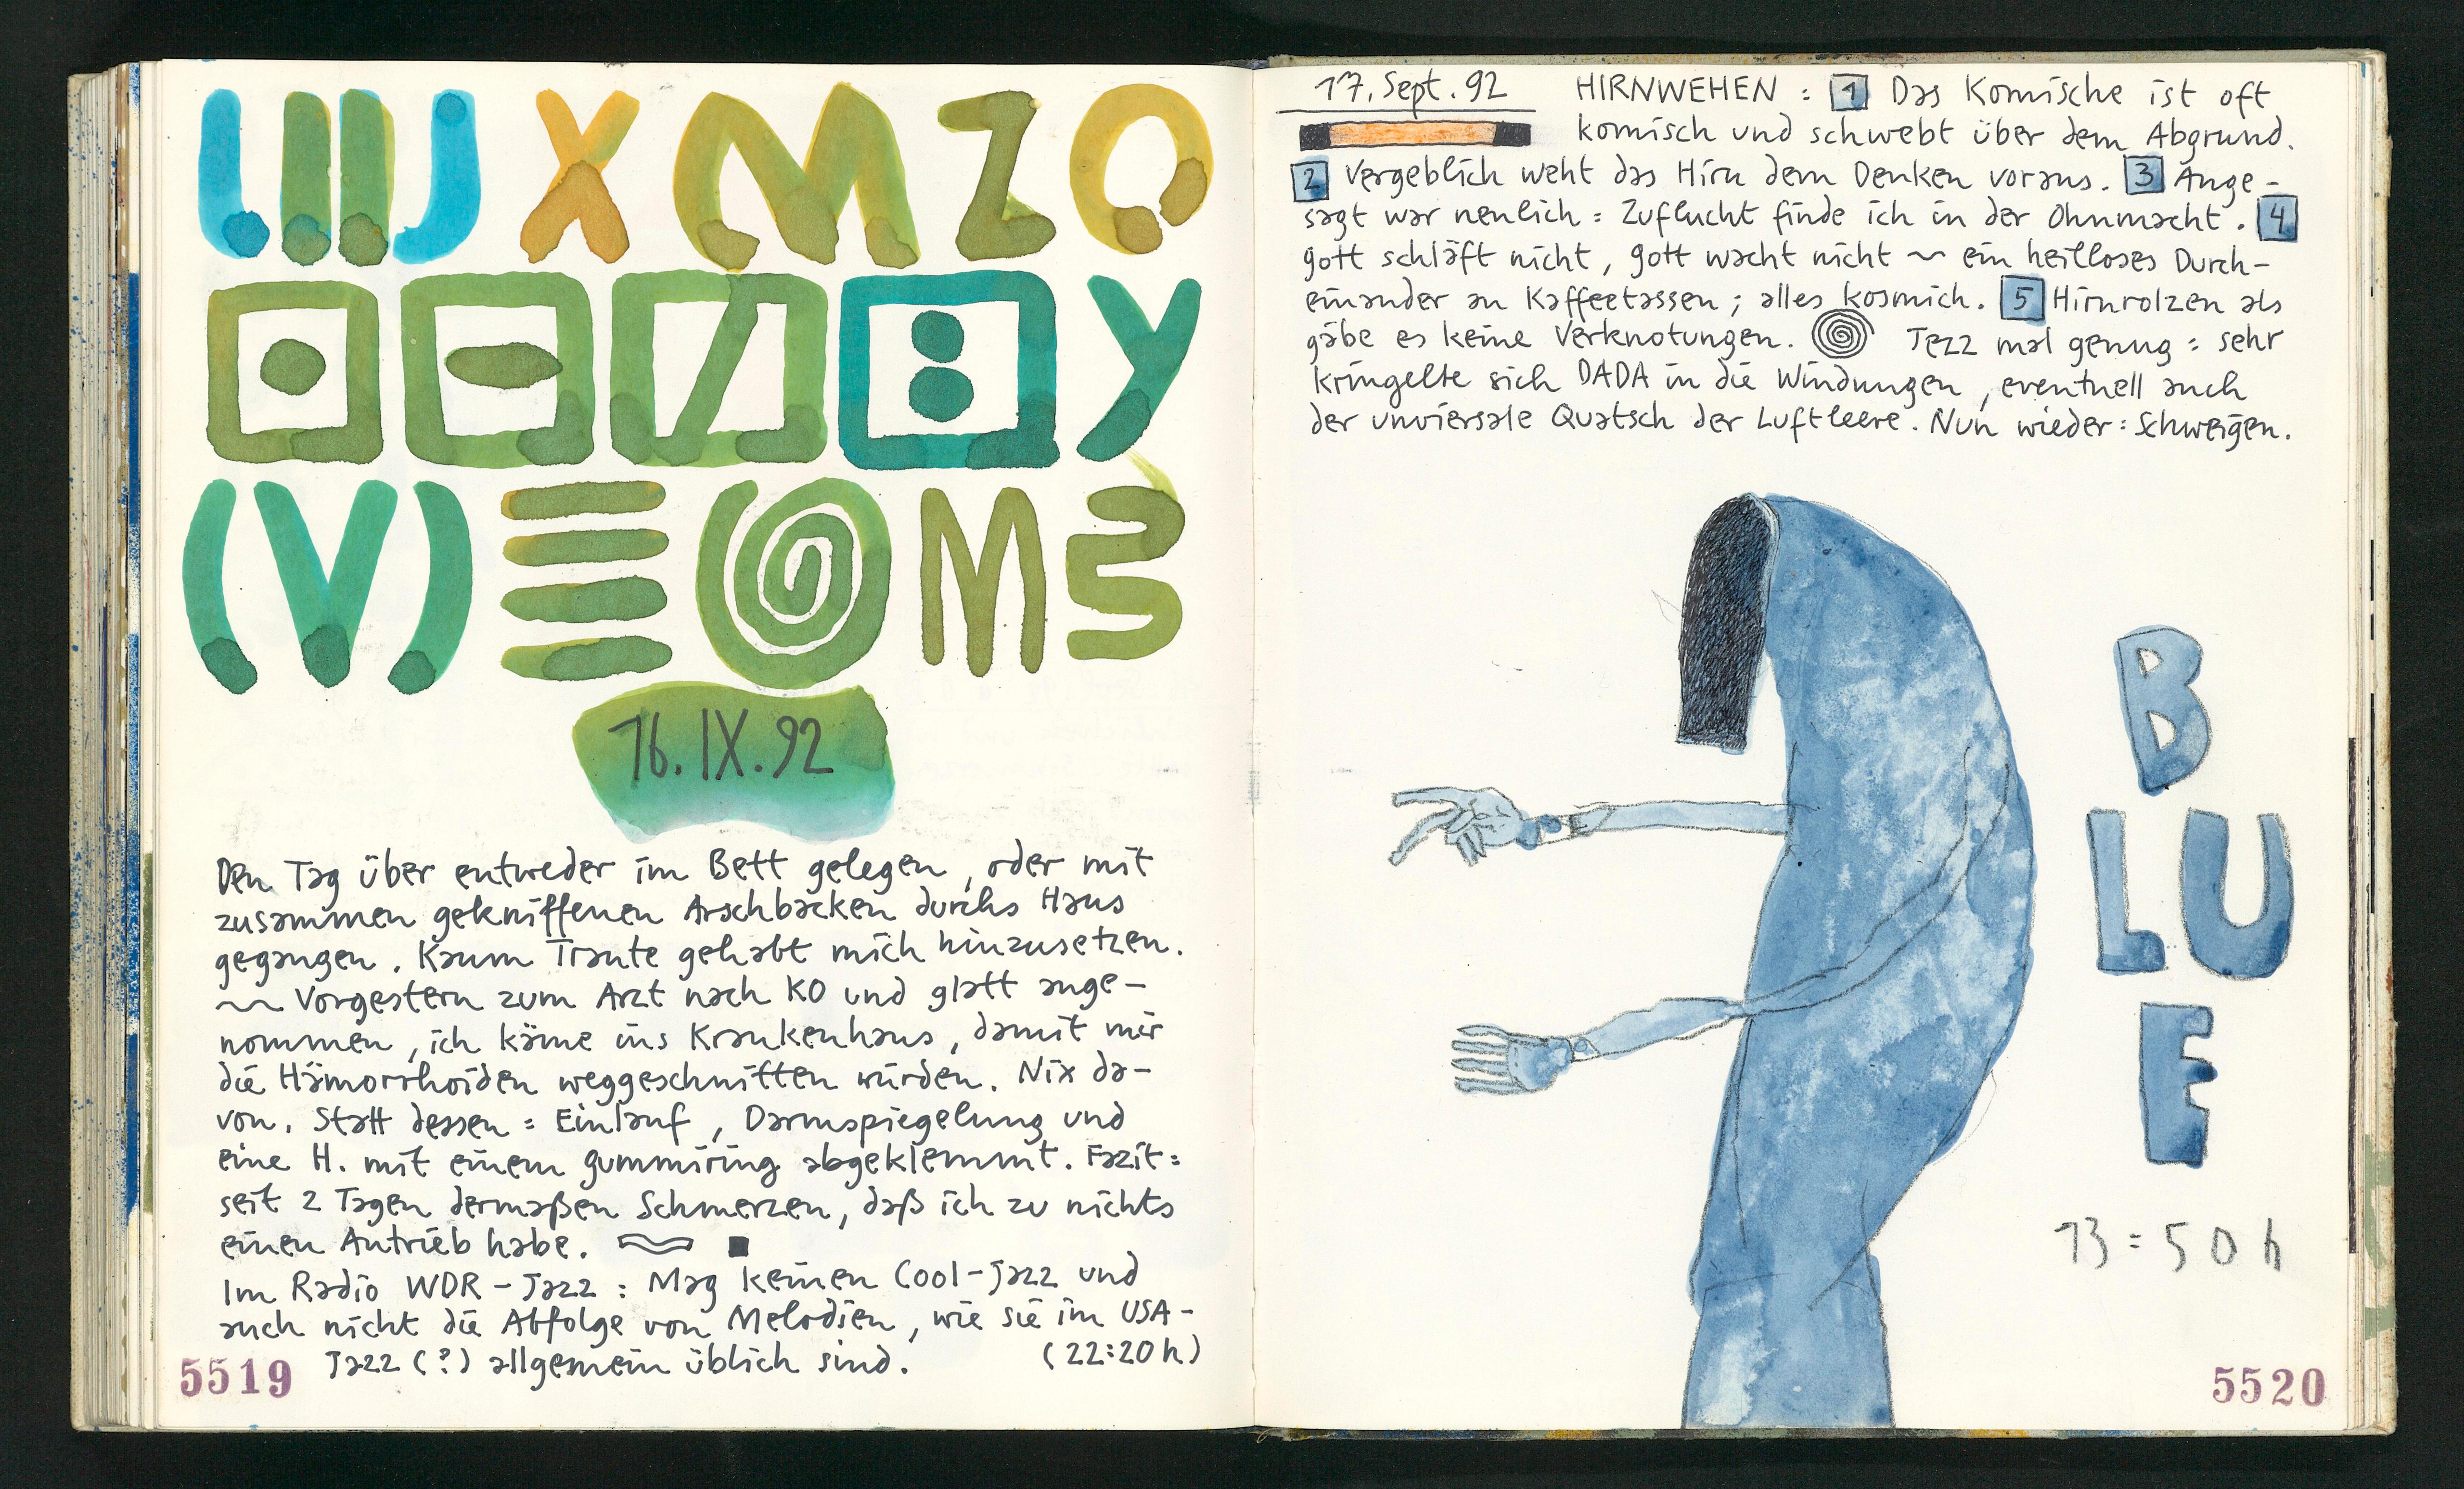 X M Z
Y
(V) M
16.IX.92
Den Tag über entweder im Bett gelegen, oder mit
zusammen gekniffenen Arschbacken durchs Haus
gegangen. Kaum Traute gehabt mich hinzusetzen.
~ Vorgestern zum Arzt nach KO und glatt ange-
nommen, ich käme ins Krankenhaus, damit mir
die Hämorrhoiden weggeschnitten würden. Nix da-
von. Statt dessen: Einlauf, Darmspiegelung und
eine H. mit einem Gummiring abgeklemmt. Fazit:
seit 2 Tagen dermaßen Schmerzen, daß ich zu nichts
einen Antrieb habe.
Im Radio WDR-Jazz: Mag keinen Cool-Jazz und
auch nicht die Abfolge von Melodien, wie sie im USA-
Jazz (?) allgemein üblich sind. (22:20h)
5519
17. Sept. 92
HIRNWEHEN: 1 Das Komische ist oft
komisch und schwebt über dem Abgrund.
2 Vergeblich weht das Hirn dem Denken voraus. 3 Ange-
sagt war neulich: Zuflucht finde ich in der Ohnmacht. 4
gott schläft nicht, gott wacht nicht ~ ein heilloses Durch-
einander an Kaffeetassen; alles kosmich. 5 Hirnrolzen als
gäbe es keine Verknotungen. Jezz mal genug: sehr
kringelte sich DADA in die Windungen, eventuell auch
der unviersale Quatsch der Luftleere. Nun wieder: Schweigen.
B
LU
E
13:50h
5520